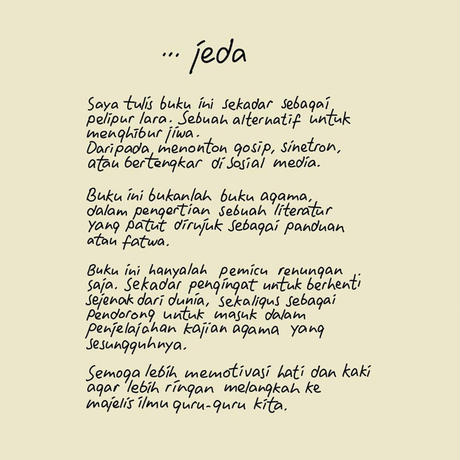 ... jeda
Saya tulis buku ini sekadar sebagai
pelipur lara. Sebuah alternatif untuk
menghibur jiwa.
Daripada, menonton gosip, sinetron,
atau bertengkar di sosial media.
Buku ini bukanlah buku agama,
dalam pengertian sebuah literatur
yang patut dirujuk sebagai panduan
atau fatwa.
Buku ini hanyalah pemicu renungan
saja. Sekadar pengingat untuk berhenti
sejenak dari dunia, sekaligus sebagai
pendorong untuk masuk dalam
penjelajahan kajian agama yang
sesungguhnya.
Semoga lebih memotivasi hati dan kaki
agar lebih ringan melangkah ke
majelis ilmu guru-guru kita.